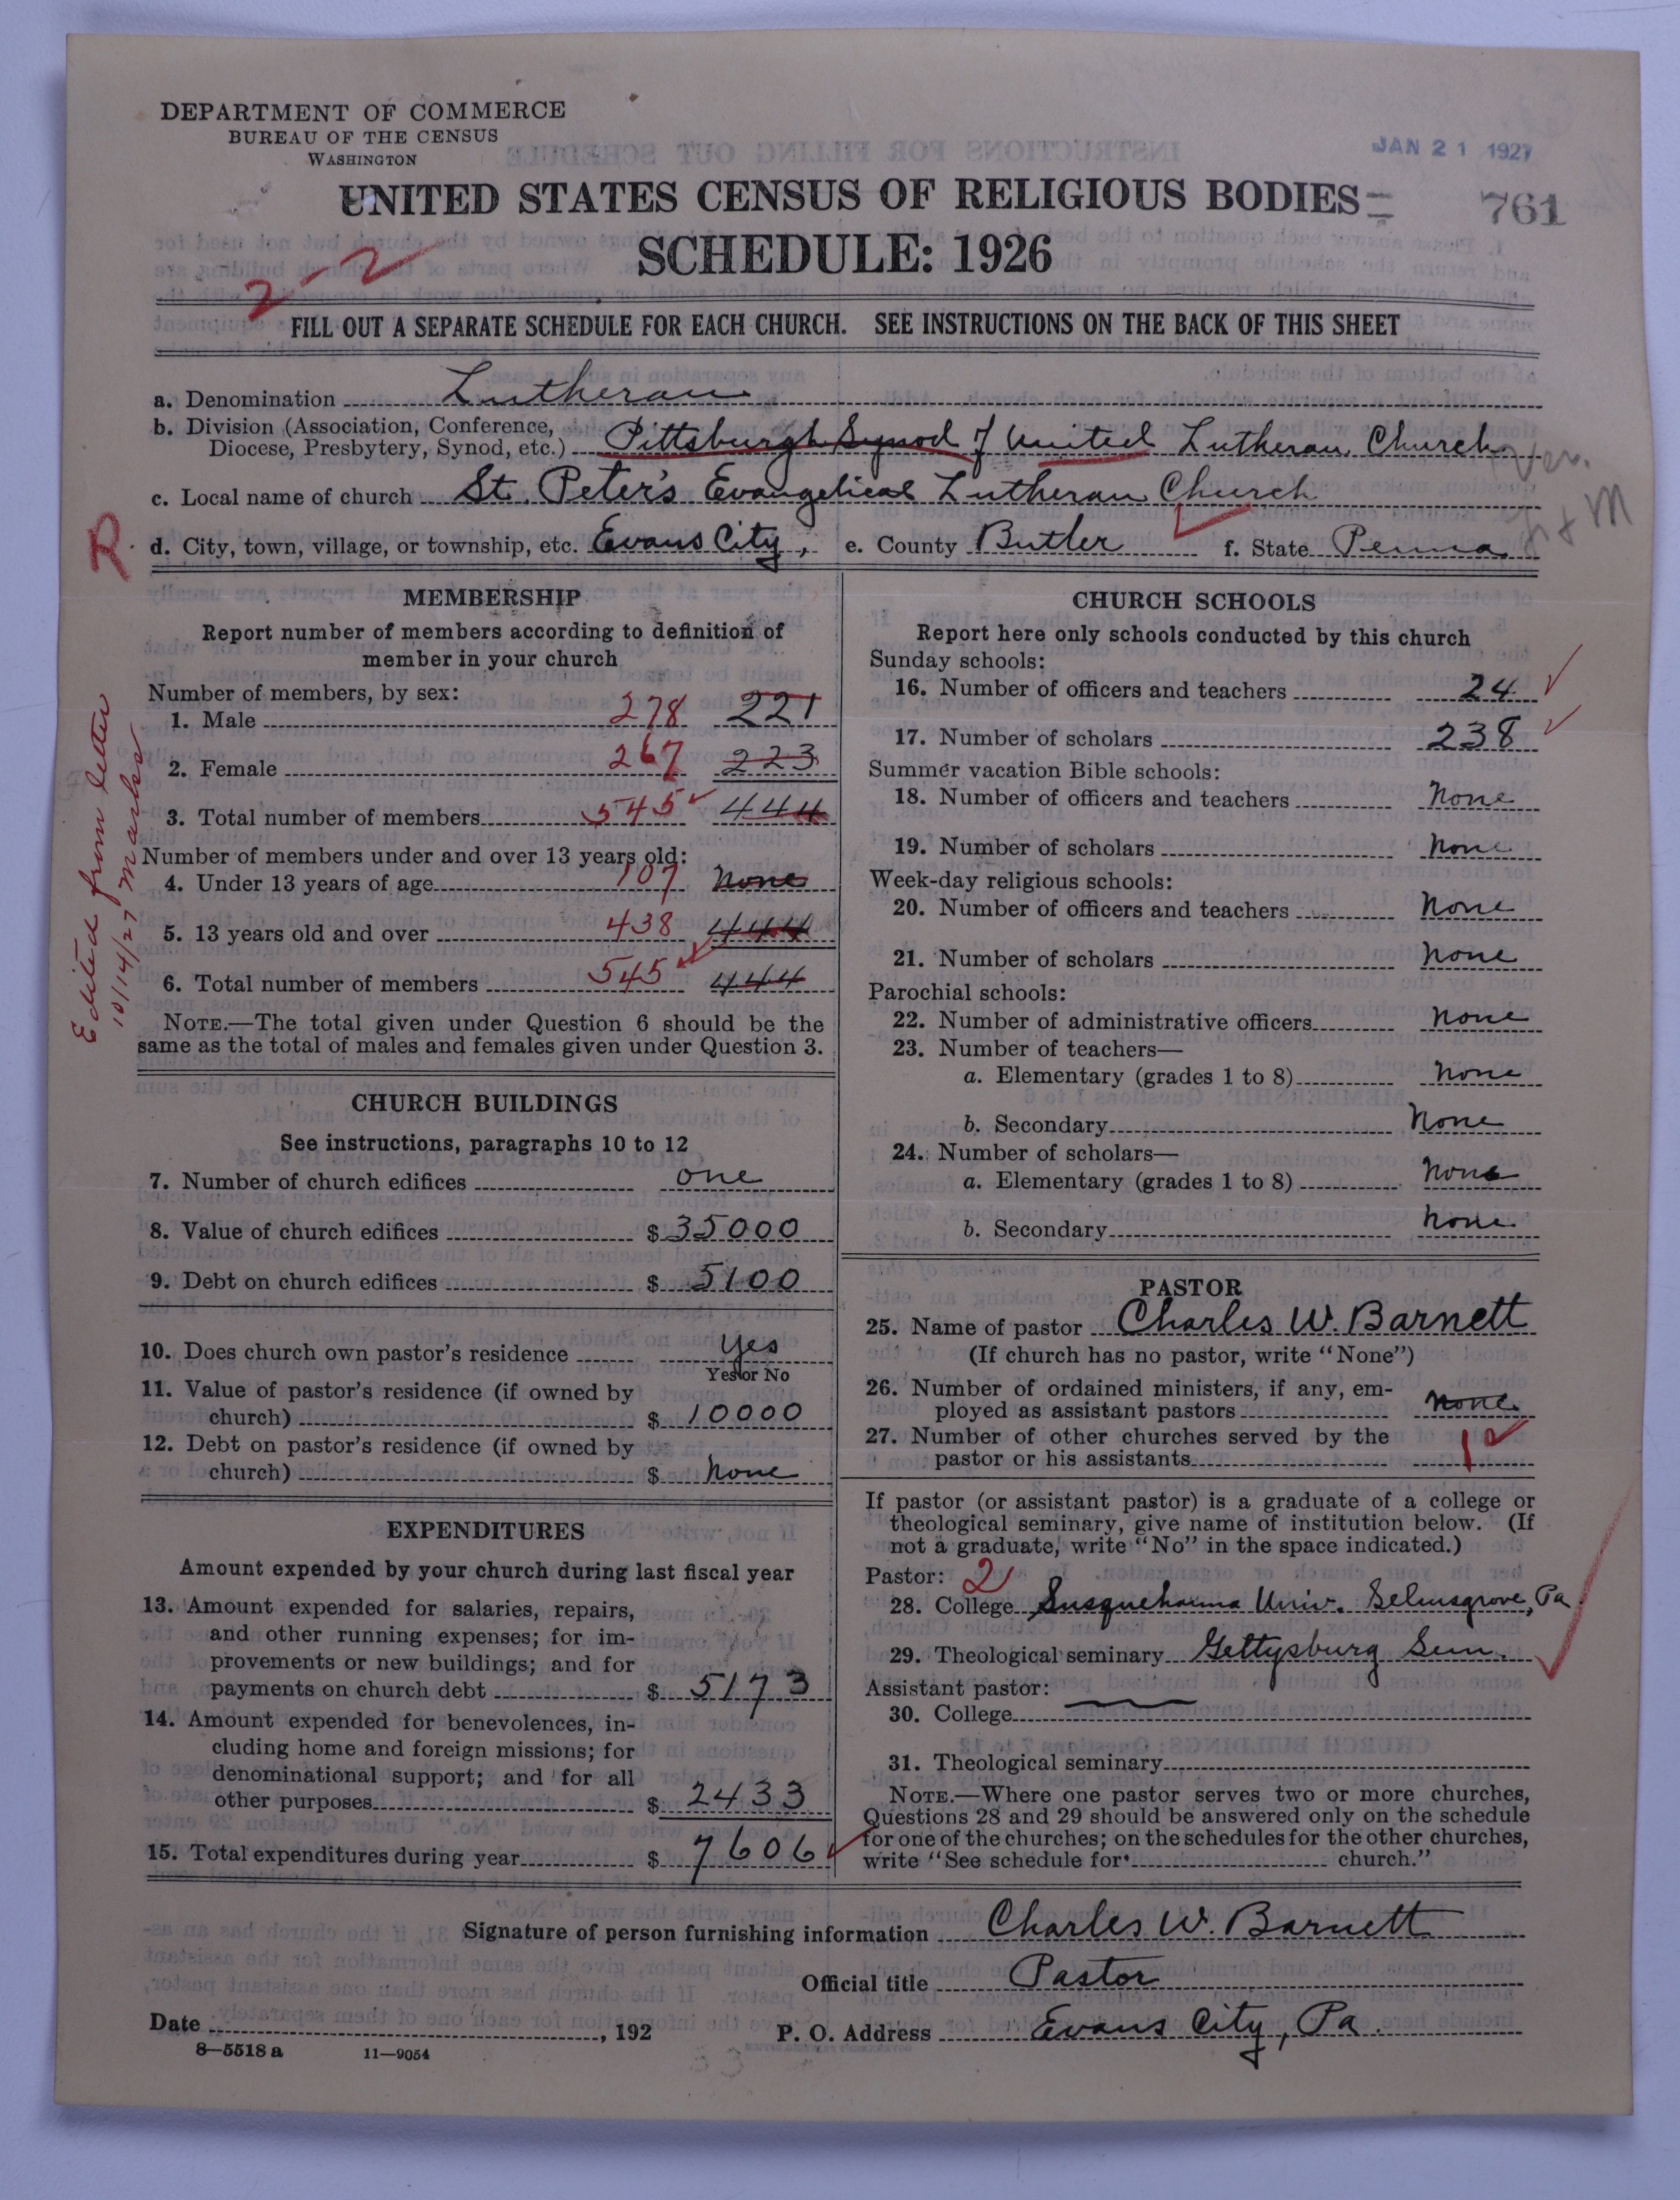 DEPARTMENT OF COMMERCE
BUREAU OF THE CENSUS
WASHINGTON
JAN 21 1927
761
UNITED STATES CENSUS OF RELIGIOUS BODIES
SCHEDULE: 1926
2-2
FILL OUT A SEPARATE SCHEDULE FOR EACH CHURCH. SEE INSTRUCTIONS ON THE BACK OF THIS SHEET
a. Denomination Lutheran
b. Division (Association, Conference, Diocese, Presbytery, Synod, etc.) Pittsburgh Synod of United Lutheran Church
c. Local name of church St. Peter's Evangelical Lutheran Church
R. d. City, town, village, or township, etc. Evans City, e. County Butler f. State Penna.
Edited from letter
10/14/27 Marks
MEMBERSHIP
Report number of members according to definition of
member in your church
Number of members, by sex:
1. Male 278 221
2. Female 267 223
3. Total number of members 545 444
Number of members under and over 13 years old:
4. Under 13 years of age 107 None
5. 13 years old and over 438 444
6. Total number of members 545 444
NOTE.—The total given under Question 6 should be the
same as the total of males and females given under Question 3.
CHURCH BUILDINGS
See instructions, paragraphs 10 to 12
7. Number of church edifices one
8. Value of church edifices $ 35000
9. Debt on church edifices $ 5100
10. Does church own pastor's residence yes
Yes or No
11. Value of pastor's residence (if owned by
church) $ 10000
12. Debt on pastor's residence (if owned by
church) $ None
EXPENDITURES
Amount expended by your church during last fiscal year
13. Amount expended for salaries, repairs,
and other running expenses; for im-
provements or new buildings; and for
payments on church debt $ 5173
14. Amount expended for benevolences, in-
cluding home and foreign missions; for
denominational support; and for all
other purposes $ 2433
15. Total expenditures during year $ 7606
CHURCH SCHOOLS
Report here only schools conducted by this church
Sunday schools:
16. Number of officers and teachers 24
17. Number of scholars 238
Summer vacation Bible schools:
18. Number of officers and teachers None
19. Number of scholars None
Week-day religious schools:
20. Number of officers and teachers None
21. Number of scholars None
Parochial schools:
22. Number of administrative officers None
23. Number of teachers—
a. Elementary (grades 1 to 8) None
b. Secondary None
24. Number of scholars—
a. Elementary (grades 1 to 8) None
b. Secondary None
PASTOR
25. Name of pastor Charles W. Barnett
(If church has no pastor, write "None")
26. Number of ordained ministers, if any, em-
ployed as assistant pastors None
27. Number of other churches served by the
pastor or his assistants 1
If pastor (or assistant pastor) is a graduate of a college or
theological seminary, give name of institution below. (If
not a graduate, write "No" in the space indicated.)
Pastor: 2
28. College Susquehanna Univ. Selinsgrove, Pa.
29. Theological seminary Gettysburg Sem.
Assistant pastor:
30. College
31. Theological seminary
NOTE.—Where one pastor serves two or more churches,
Questions 28 and 29 should be answered only on the schedule
for one of the churches; on the schedules for the other churches,
write "See schedule for church."
Signature of person furnishing information Charles W. Barnett
Official title Pastor
Date , 192 P. O. Address Evans City, Pa.
8—5518 a 11—9054